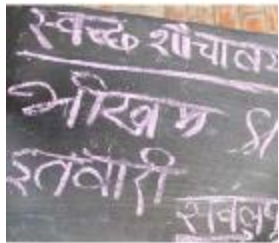 स्वच्छ शौचालय
भीखम
इतवारी